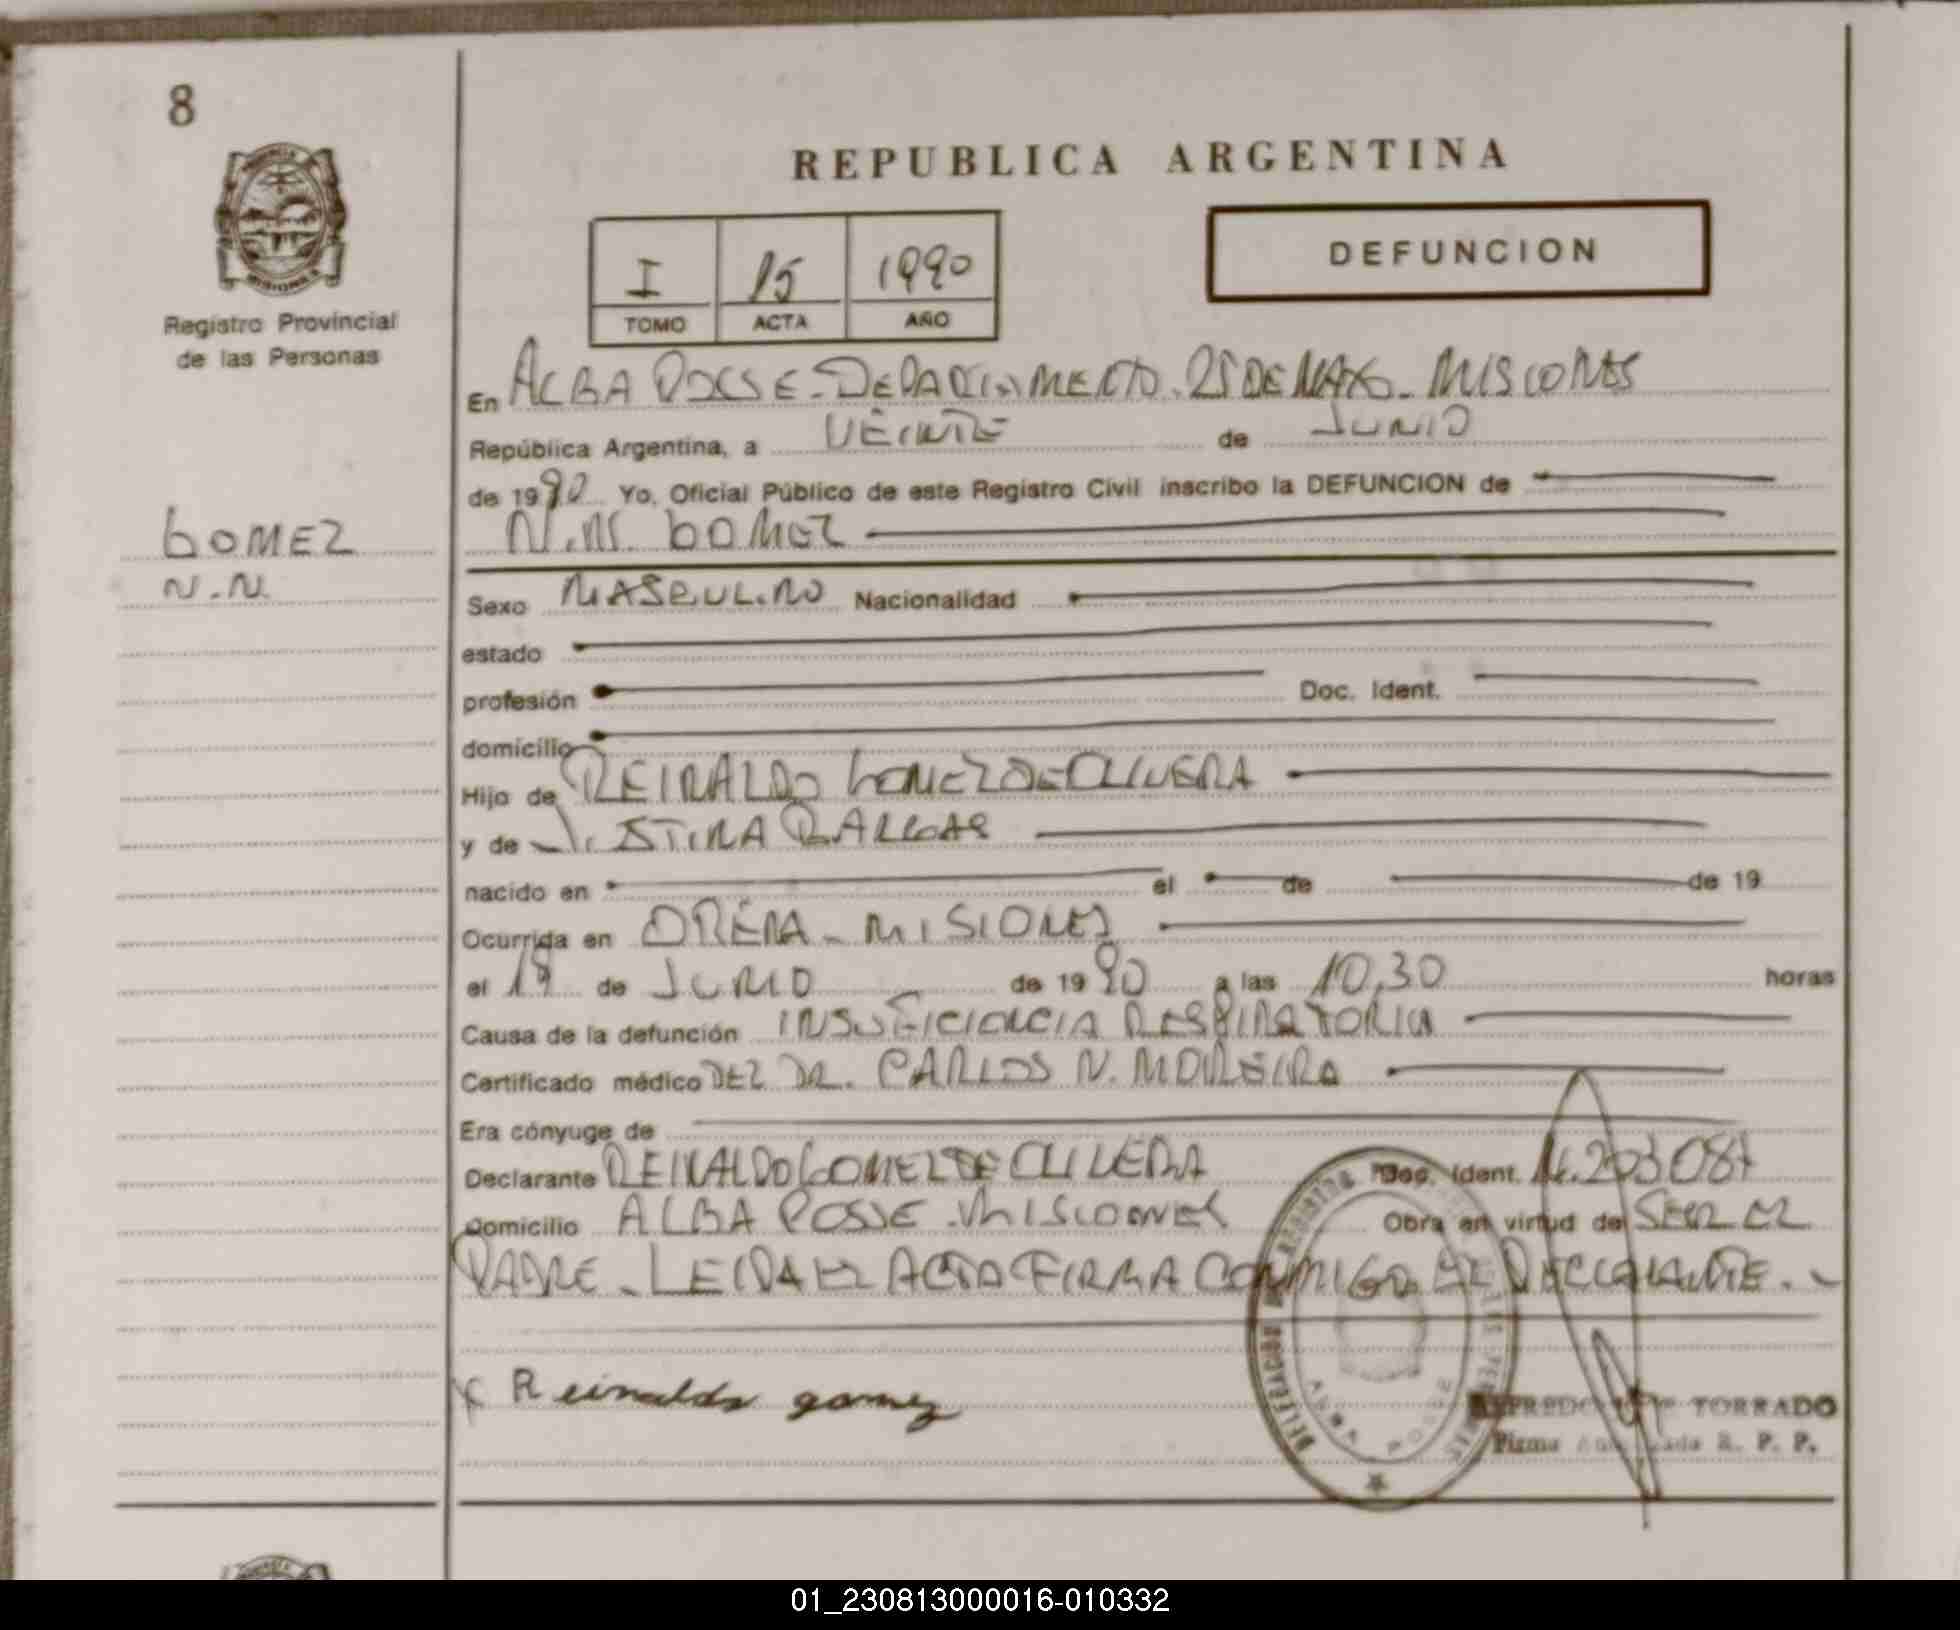 8
REPUBLICA ARGENTINA
DEFUNCION
I 15 1990
TOMO ACTA AÑO
MISIONES
Registro Provincial
de las Personas
En ALBA POSSE - DEPARTAMENTO 25 DE MAYO - MISIONES
República Argentina, a VEINTE de JUNIO
de 1990 Yo, Oficial Público de este Registro Civil inscribo la DEFUNCION de
N.N. GOMEZ
GOMEZ
N.N.
Sexo MASCULINO Nacionalidad
estado
profesión Doc. Ident.
domicilio
Hijo de REINALDO GOMEZ DE OLIVERA
y de
nacido en el de de 19
Ocurrida en MISIONES
el de JUNIO de 1990 a las 10,30 horas
Causa de la defunción INSUFICIENCIA RESPIRATORIA
Certificado médico DEL DR. CARLOS N. MOREIRA
Era cónyuge de
Declarante REINALDO GOMEZ DE OLIVERA Doc. Ident.
Domicilio ALBA POSSE - MISIONES Obra en virtud de SER EL
PADRE - LEIDA EL ACTA FIRMA CONMIGO EL DECLARANTE.-
Reinaldo gomez
ALBA POSSE
TORRADO
Firma Autorizada R. P. P.
01_230813000016-010332